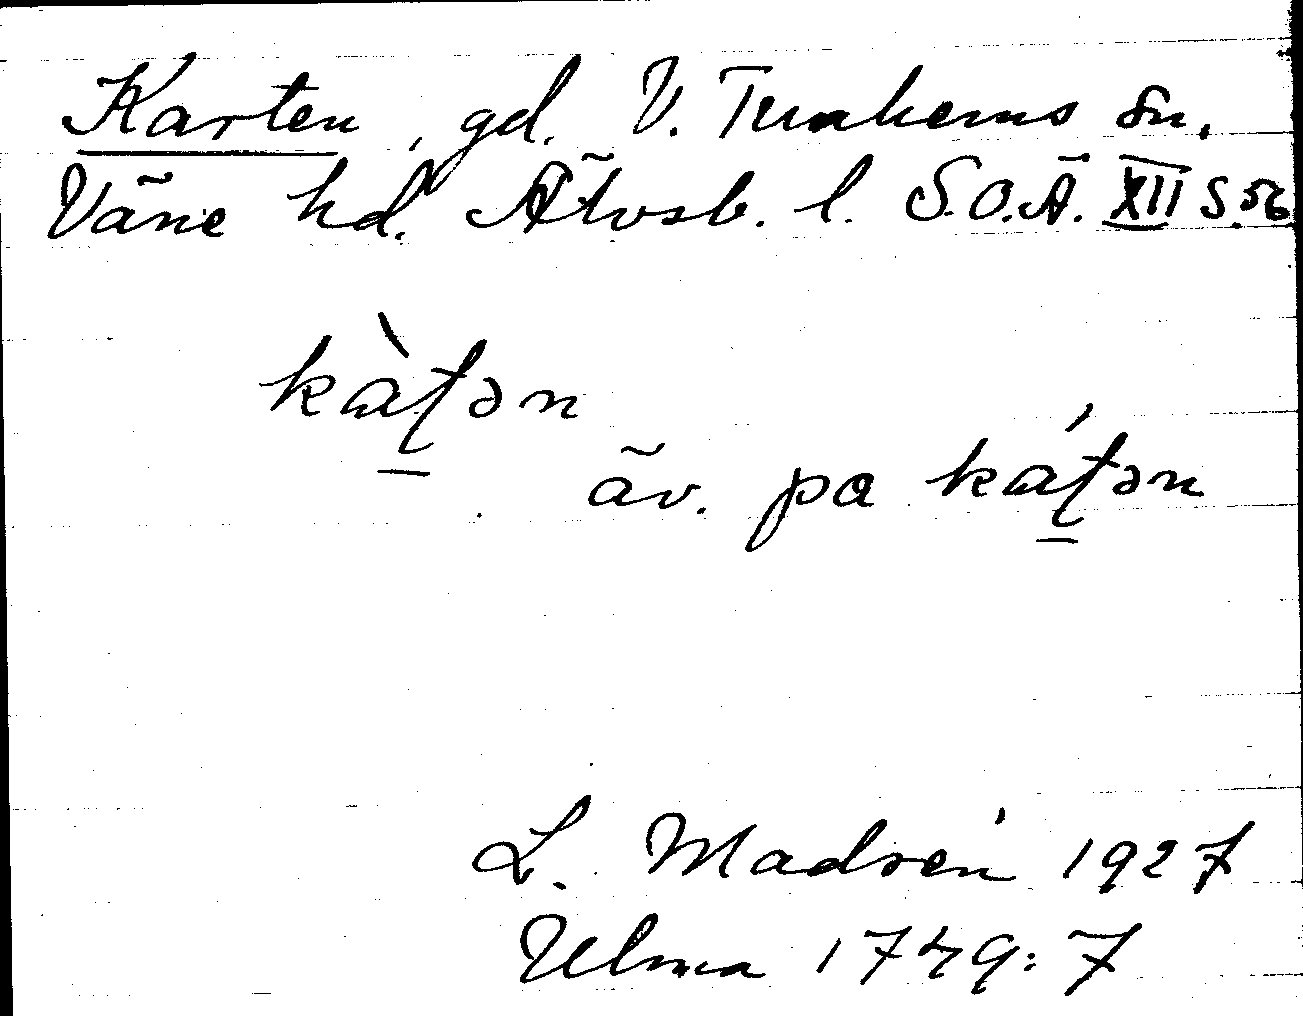 Karten, gd. V. Tunhems sn.
Väne hd. Älvsb. l. S.O.Ä. XII S. 56
kàt̠ən
äv. pa kát̠ən
L. Madsén 1927
Ulma 1749:7